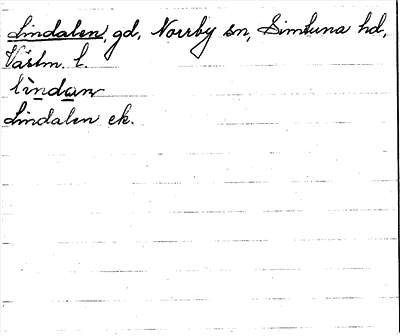 Lindalen, gd, Norrby sn, Simtuna hd,
Västm. l.
lìndan
Lindalen ek.